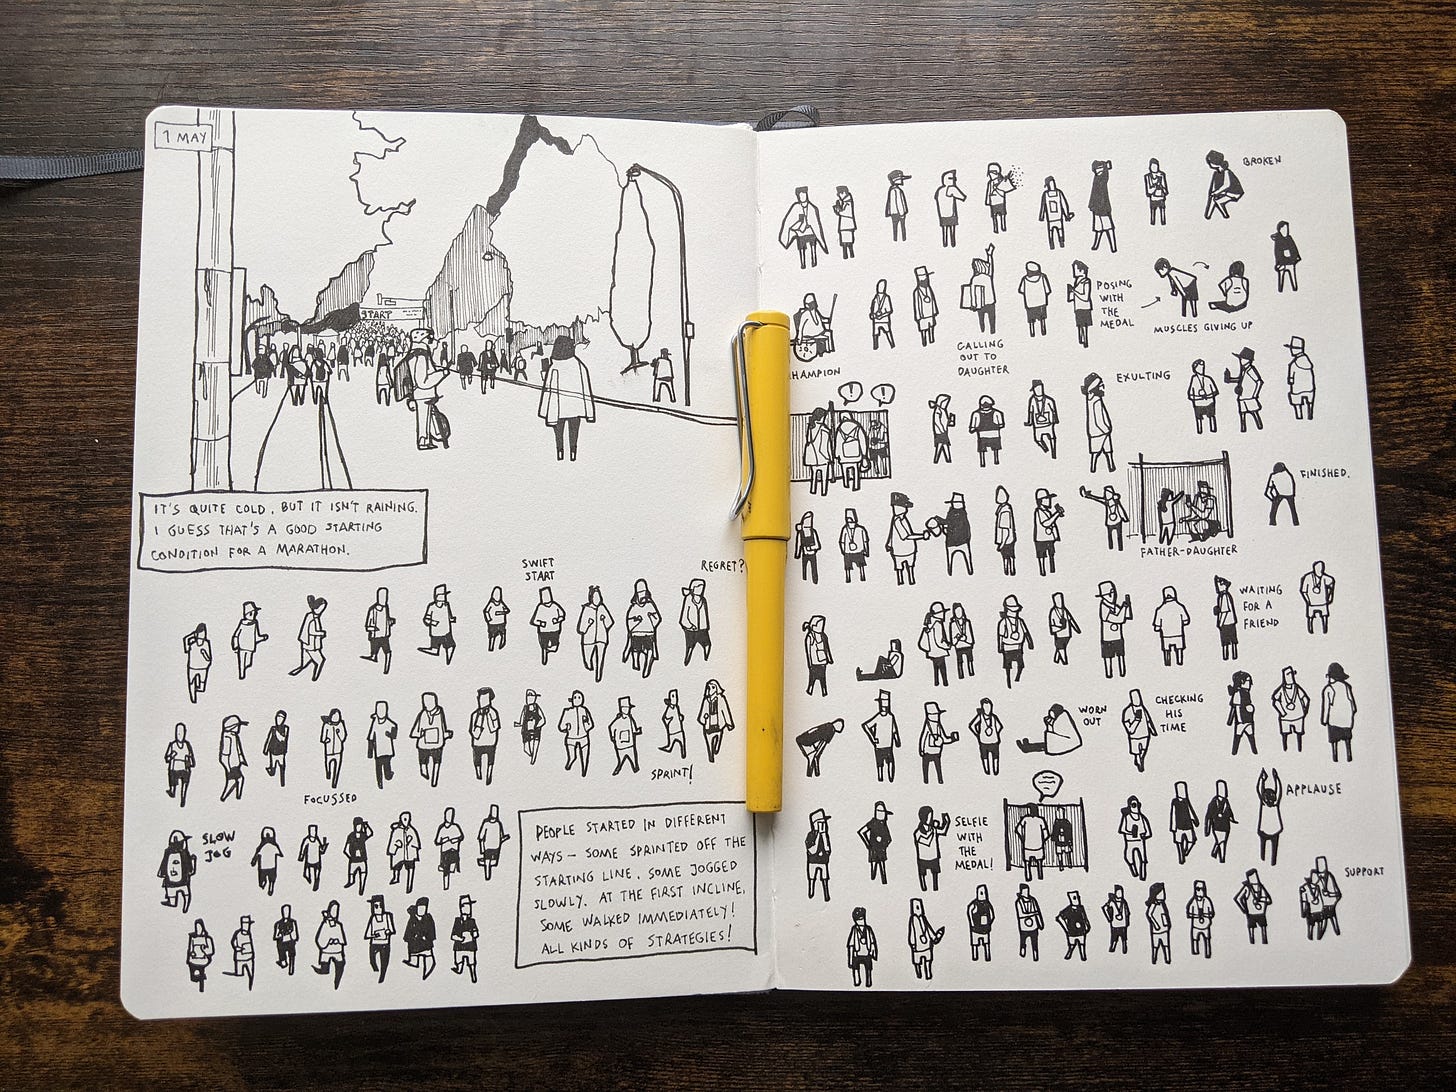 1 MAY
START
IT'S QUITE COLD, BUT IT ISN'T RAINING.
I GUESS THAT'S A GOOD STARTING
CONDITION FOR A MARATHON.
SWIFT
START
REGRET?
SPRINT!
FOCUSSED
SLOW
JOG
PEOPLE STARTED IN DIFFERENT
WAYS – SOME SPRINTED OFF THE
STARTING LINE. SOME JOGGED
SLOWLY. AT THE FIRST INCLINE,
SOME WALKED IMMEDIATELY!
ALL KINDS OF STRATEGIES!
BROKEN
POSING
WITH
THE
MEDAL
MUSCLES GIVING UP
HAMPION
CALLING
OUT TO
DAUGHTER
!
!
EXULTING
FINISHED.
FATHER-DAUGHTER
WAITING
FOR A
FRIEND
WORN
OUT
CHECKING
HIS
TIME
SELFIE
WITH
THE
MEDAL!
APPLAUSE
SUPPORT